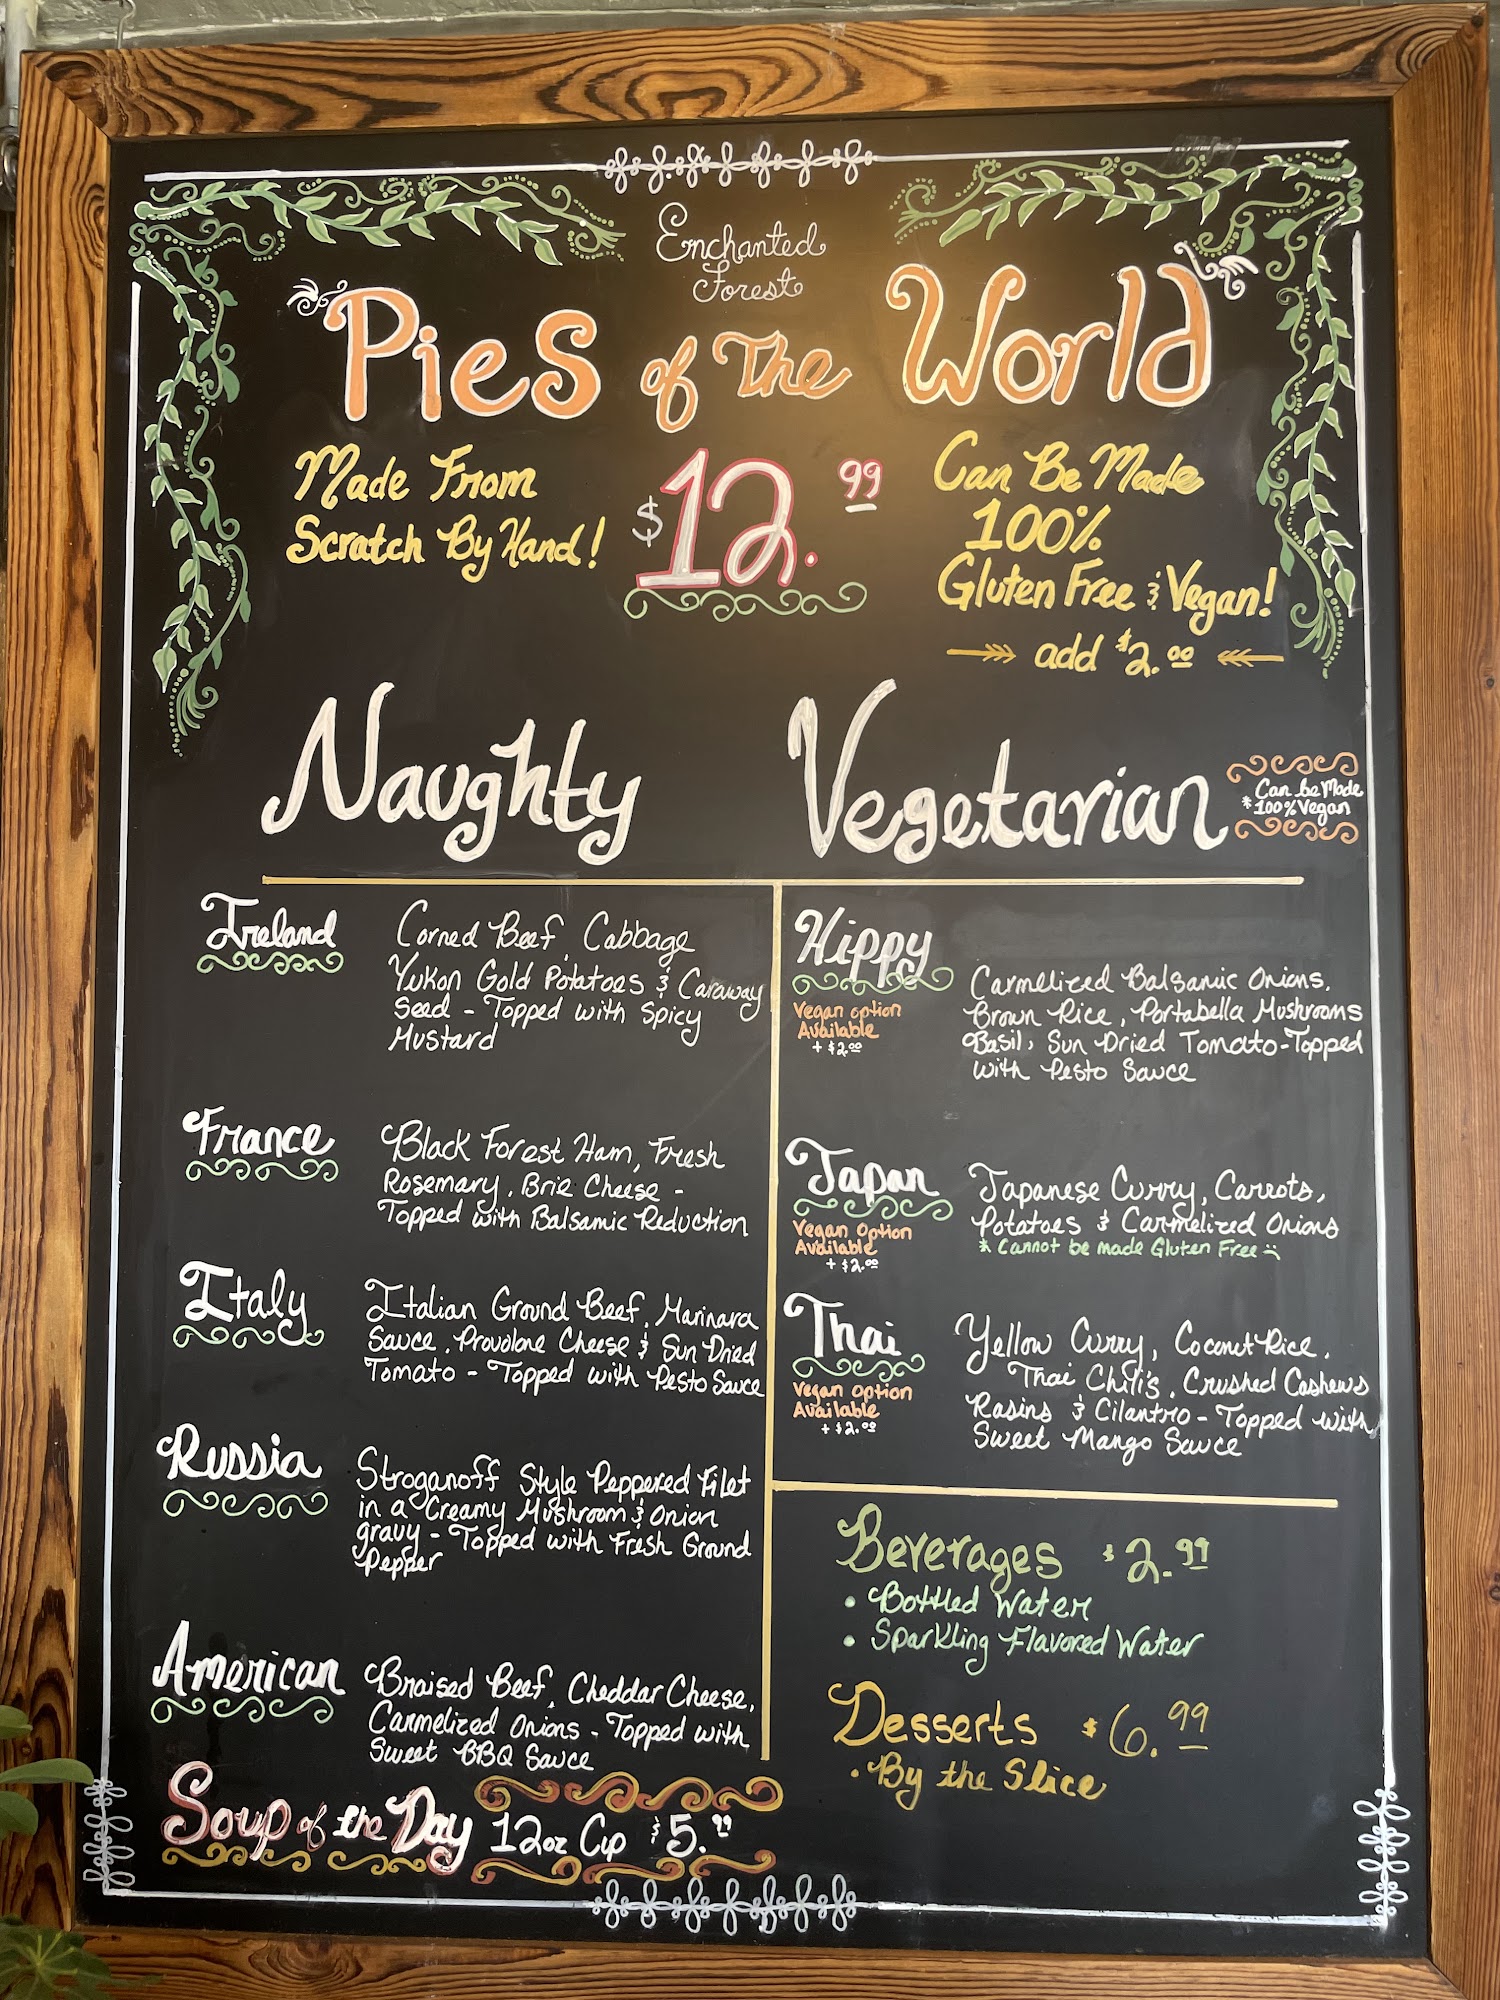 Enchanted
Forest
Pies of The World
Made From
Scratch By Hand!
$12.99
Can Be Made
100%
Gluten Free & Vegan!
add $2.00
Naughty
Ireland
Corned Beef, Cabbage
Yukon Gold Potatoes & Caraway
Seed - Topped with Spicy
Mustard
France
Black Forest Ham, Fresh
Rosemary, Brie Cheese -
Topped with Balsamic Reduction
Italy
Italian Ground Beef, Marinara
Sauce, Provolone Cheese & Sun Dried
Tomato - Topped with Pesto Sauce
Russia
Stroganoff Style Peppered Filet
in a Creamy Mushroom & Onion
gravy - Topped with Fresh Ground
Pepper
American
Braised Beef, Cheddar Cheese,
Carmelized Onions - Topped with
Sweet BBQ Sauce
Soup of the Day 12oz Cup $5.99
Vegetarian
Can be Made
*100% Vegan
Hippy
Vegan option
Available
+ $2.00
Carmelized Balsamic Onions,
Brown Rice, Portabella Mushrooms
Basil, Sun Dried Tomato - Topped
with Pesto Sauce
Japan
Vegan Option
Available
+ $2.00
Japanese Curry, Carrots,
Potatoes & Carmelized Onions
* Cannot be made Gluten Free :(
Thai
Vegan Option
Available
+ $2.00
Yellow Curry, Coconut Rice,
Thai Chili's, Crushed Cashews
Rasins & Cilantro - Topped with
Sweet Mango Sauce
Beverages $2.99
• Bottled Water
• Sparkling Flavored Water
Desserts $6.99
• By the Slice